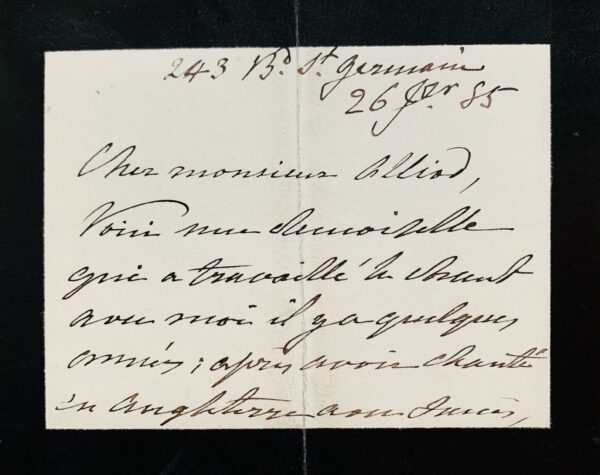 243 Bd. St. Germain
26 Jer 85
Cher monsieur Alliod,
Voici une demoiselle
qui a travaillé le chant
avec moi il y a quelques
années ; après avoir chanté
en Angleterre avec succès,